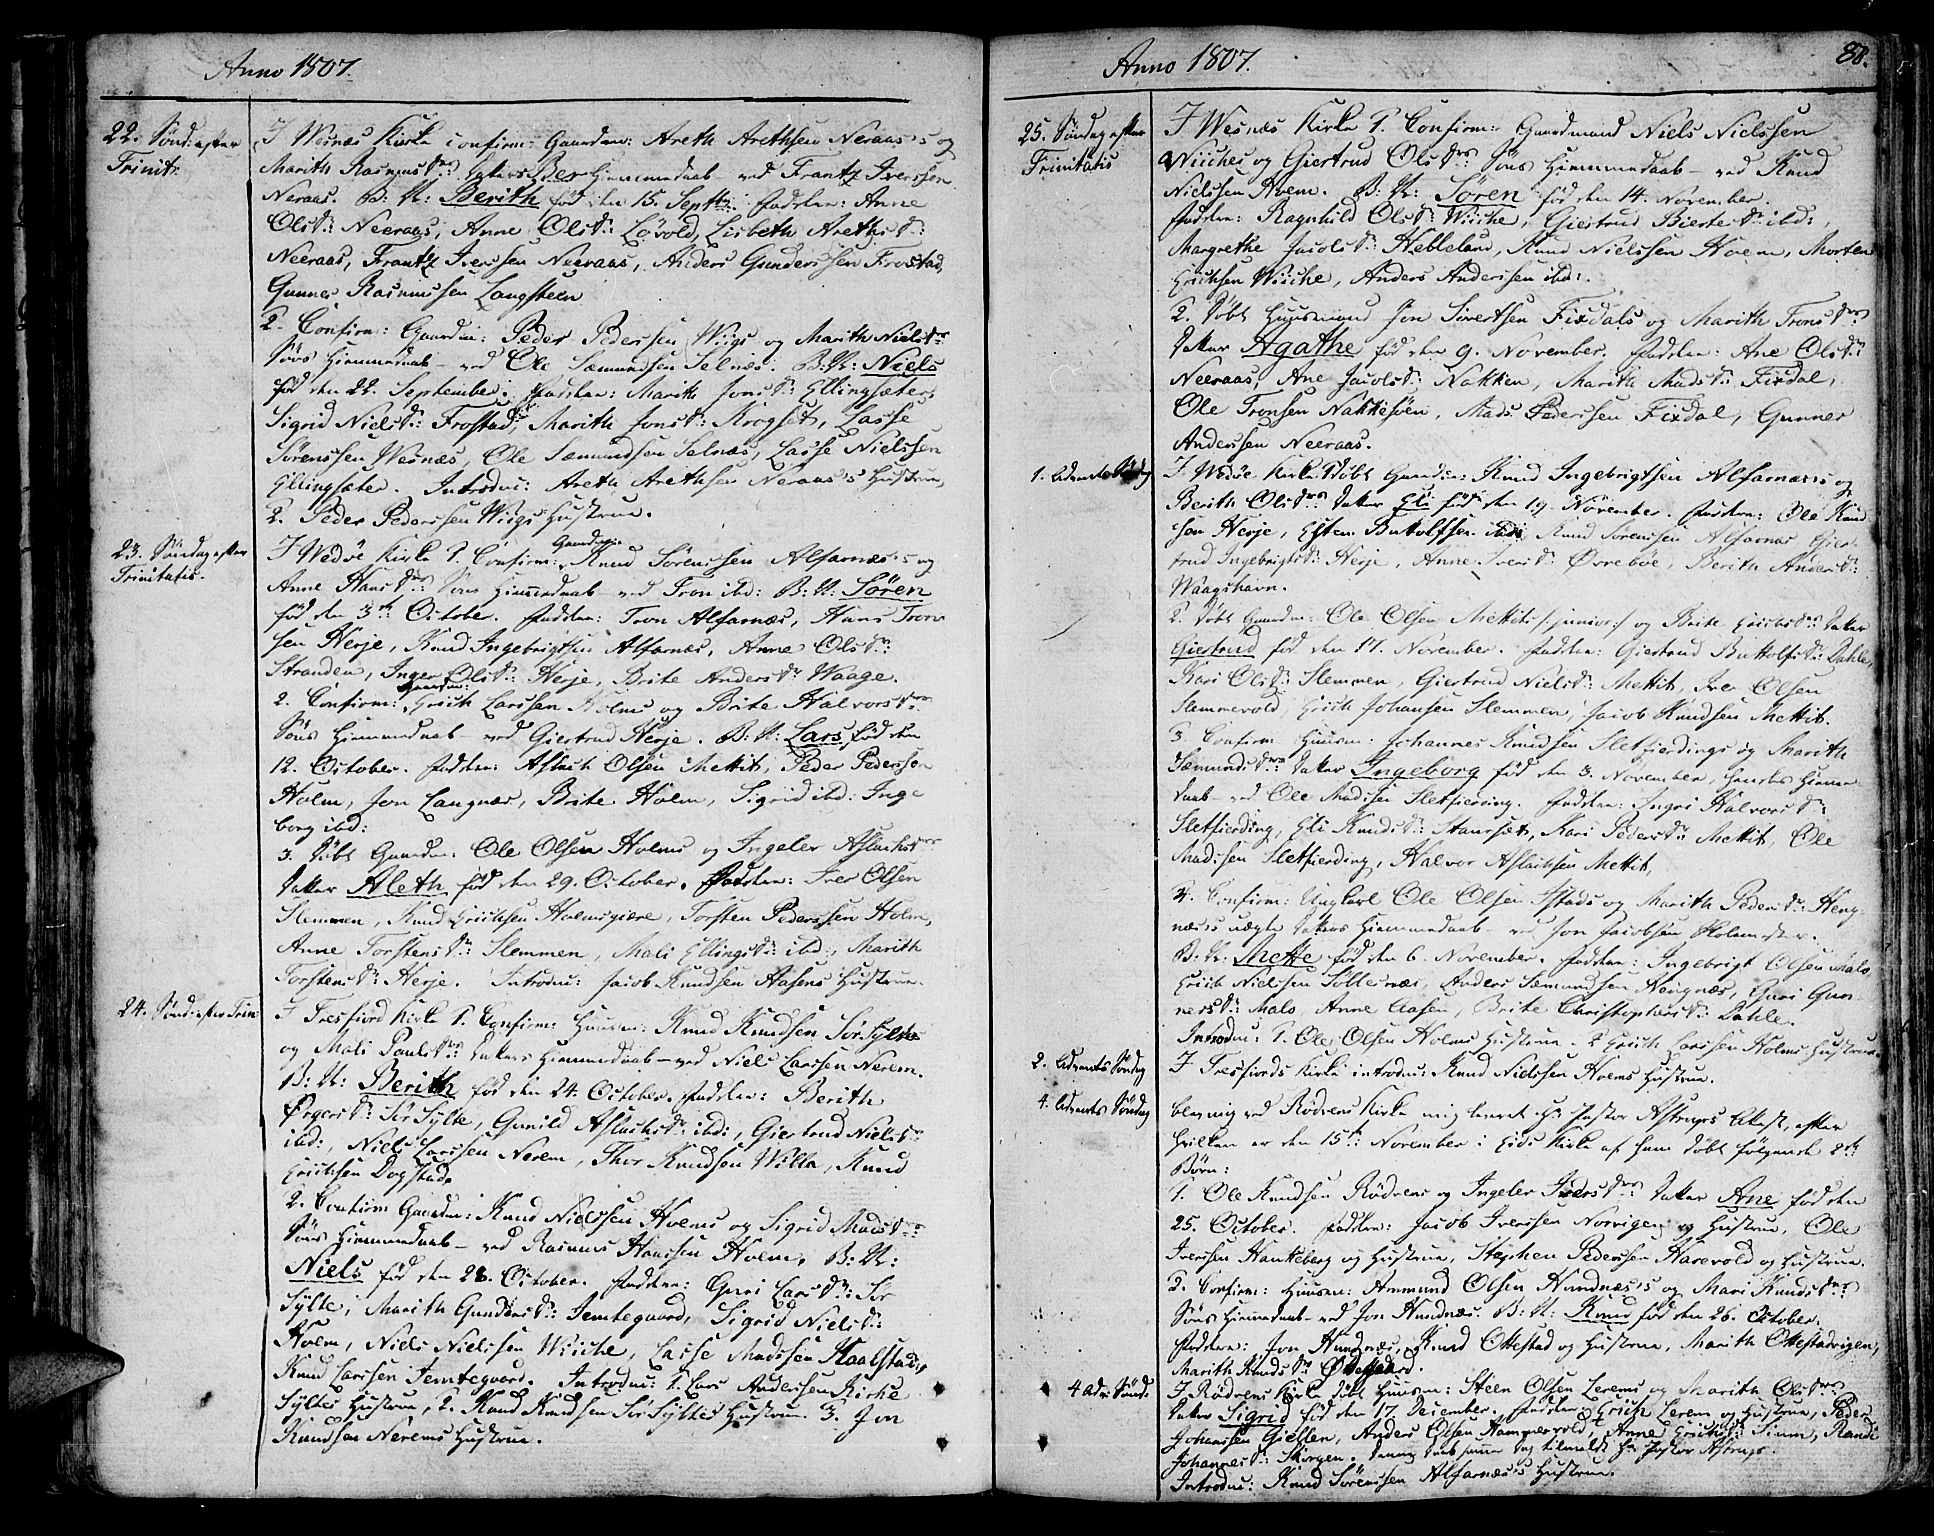 Anno 1807.
22. Sönd: efter
Trinit:
I Wesnæs Kirke confirm: Gaardm: Areth Arethsen Neraas's og
Marith Rasmusdr: Datters Hiemmedaab ved Frantz Iverssen
Neraas. B: N: Berith fød den 15. Septbr: Fadder: Anne
Olsdr: Neeraas, Anne Olsdr: Lövold, Lisbeth Arethsdr:
Neeraas, Frantz Iverssen Neeraas, Anders Gunderssen Frostad,
Gunner Rasmussen Langsteen
2. Confirm: Gaardm: Peder Pederssen Wiigs og Marith Nielsdr:
Söns Hiemmedaab ved Ole Sæmundsen Selnæs. B: N: Niels
fød den 22. September. Fadder: Marith Jonsdr: Ellingsæter,
Sigrid Nielsdr: Frostad, Marith Jonsdr: Krogset, Lasse
Sörenssen Wesnæs, Ole Sæmundsen Selnæs, Lasse Nielssen
Ellingsæter. Introdu: Areth Arethsen Neraas's Hustrue,
2. Peder Pederssen Wiigs Hustrue.
23. Söndag efter
Trinitatis.
I Wedöe Kirke 1. Confirm: Gaardm: Knud Sörenssen Alfarnæs's og
Anne Hansdr: Söns Hiemmedaab ved Tron ibd: B: N: Sören
fød den 3de October. Fadder: Tron Alfarnæs, Hans Tron
sen Herje, Knud Ingebrigtsen Alfarnæs, Anne Olsdr:
Stranden, Inger Olsdr: Herje, Brite Andersdr: Waage.
2. Confirm: Gaardm: Erich Larssen Holms og Brite Halvorsdr:
Söns Hiemmedaab ved Giertrud Herje. B: N: Lars, fød den
12. October. Fadder: Aslach Olsen Mettit, Peder Pedersen
Holm, Jon Langnæs, Brite Holm, Sigrid ibd: Inge
borg ibd:
3. Döbt Gaardm: Ole Olsen Holms og Ingeler Aslachsdr:
Datter Aleth fød den 29. October. Fadder: Iver Olsen
Slemmen, Knud Erichsen Holmsgiære, Torsten Pederssen Holm,
Anne Torstensdr: Slemmen, Mali Ellingsdr: ibd:, Marith
Torstensdr: Herje. Introdu: Jacob Knudsen Aasens Hustrue.
24. Sönd: efter Trin
I Tresfiord Kirke 1. Confirm: Huusm: Knud Knudsen Sör Sylte
og Mali Paulsdr: Datters Hiemmedaab ved Niel Larssen Nerem.
B: N: Berith fød den 24. October. Fadder: Berith
Örgersdr: Sör Sylte, Gunild Aslachsdr: ibd:, Giertrud Nielsdr:
ibd:, Niel Larssen Nerem, Thor Knudsen Willa, Knud
Erichsen Dogstad.
2. Confirm Gaardm: Knud Nielssen Hoems og Sigrid Madsdr:
Söns Hiemmedaab ved Rasmus Hanssen Holm. B: N:
Niels fød den 28. October. Fadder: Guri Larsdr: Sör
Sylte, Marith Gundersdr: Jemtegaard, Sigrid Nielsdr:
Holm, Niels Nielssen Wiiche, Lasse Madssen Kaalstad,
Knud Larssen Jemtegaard. Introdu: 1. Lars Anderssen Kirke
Syltes Hustrue, 2. Knud Knudsen Sör Syltes Hustrue. 3. Jon
Knudsen Nerems Hustrue.
Anno 1807.
88.
25. Söndag efter
Trinitatis
I Wesnæs Kirke 1. Confirm: Gaardmand Niels Nielssen
Wiiches og Giertrud Olsdr: Söns Hiemmedaab ved Knud
Nielssen Hoem. B: N: Sören fød den 14. November.
Fadder: Ragnhild Olsdr: Wiiche, Giertrud Biertesdr: ibd:
Margrethe Jacobsdr: Hebbeland, Knud Nielssen Hoem, Morten
Erichsen Wiiche, Anders Anderssen ibd:.
2. Döbt Huusmand Jon Sivertsen Fixdals og Marith Tronsdr:
Datter Agathe fød den 9. November. Fadder: Ane Olsdr:
Neeraas, Ane Jacobsdr: Nakken, Marith Madsdr: Fixdal,
Ole Tronsen Nakkesöen, Mads Pederssen Fixdal, Gunner
Anderssen Neeraas.
1. Advents Söndag
I Wedöe Kirke 1 Döbt Gaardm: Knud Ingebrigtsen Alfarnæs's og
Berith Olsdr: Datter Eli fød den 19. November. Fadder: Ole Knud
sen Herje, Esten Buttolfsen ibd: Knud Sörenssen Alfarnæs, Gier
trud Ingebrigtsdr: Herje, Anne Iversdr: Övreböe, Berith Andersdr:
Waagshavn.
2. Döbt Gaardm: Ole Olsen Mettits /:junior:/ og Brite Jacobsdr: Datter
Giertrud fød den 17. November. Fadder: Giertrud Buttolfsdr: Dahle,
Kari Olsdr: Slemmen, Giertrud Nielsdr: Mettit, Iver Olsen
Slemmevold, Erich Johansen Slemmen, Jacob Knudsen Mettit.
3. Confirm Huusm: Johannes Knudsen Sletfierdings og Marith
Sæmundsdr: Datter Ingeborg fød den 3. November, hendes Hiemme
daab ved Ole Madssen Sletfierding. Fadder: Ingri Halvorsdr:
Sletfierding, Eli Knudsdr: Staursæt, Kari Pedersdr: Mettit, Ole
Madssen Sletfierding, Halvor Aslachsen Mettit,
4. Confirm: Ungkarl Ole Olsen Istads og Marith Pedersdr: Heng
næs's uægte Datters Hiemmedaab ved Jon Jacobsen Holmester.
B: N: Mette fød den 6. November. Fadder: Ingebrigt Olsen Malo
Erich Nielsen Söllesnæs, Anders Sæmundsen Hengnæs, Guri Gun
nersdr: Malo, Anne Aasen, Brite Christophersdr: Dahle.
Introdu: 1. Ole Olsen Holms Hustrue. 2 Erich Larssen Holms Hustrue.
2. Advents Söndag
I Tresfiords Kirke introdu: Knud Nielssen Hoems Hustrue.
4. Advents Söndag
blev mig ved Rödvens Kirke leveret Hr Pastor Astrups Attest, efter
hvilken er den 15de November i Eids Kirke af ham döbt fölgende 2de
Börn:
1. Ole Knudsen Rödvens og Ingeler Iversdr: Datter Ane fød den
25. October. Fadder: Jacob Iverssen Norvigen og Hustrue, Ole
Iverssen Hankeberg og Hustrue, Stephen Pederssen Harevold og Hustrue.
2. Confirm: Huusm: Ammund Olsen Hundnæs's og Mari Knudsdr:
Söns Hiemmedaab ved Jon Hundnæs. B: N: Knud fød den 26. October.
Fadder: Jon Hundnæs, Knud Ottestad og Hustrue, Marith Ottestadvigen,
Marith Knudsdr:
4 Adv: Sönd.
I Rödvens Kirke döbt Huusm: Steen Olsen Lerems og Marith Olsdr:
Datter Sigrid fød den 17 December. Fadder: Erich Lerem og Hustrue, Peder
Johanssen Giellen, Anders Olsen Hammervold, Anne Erichsdr: Siem, Randi
Johannesdr: Skorgen. Denne Daab samme Dag tilmeldt Hr Pastor Astrup.
Introdu: Knud Sörenssen Alfarnæs's Hustrue.